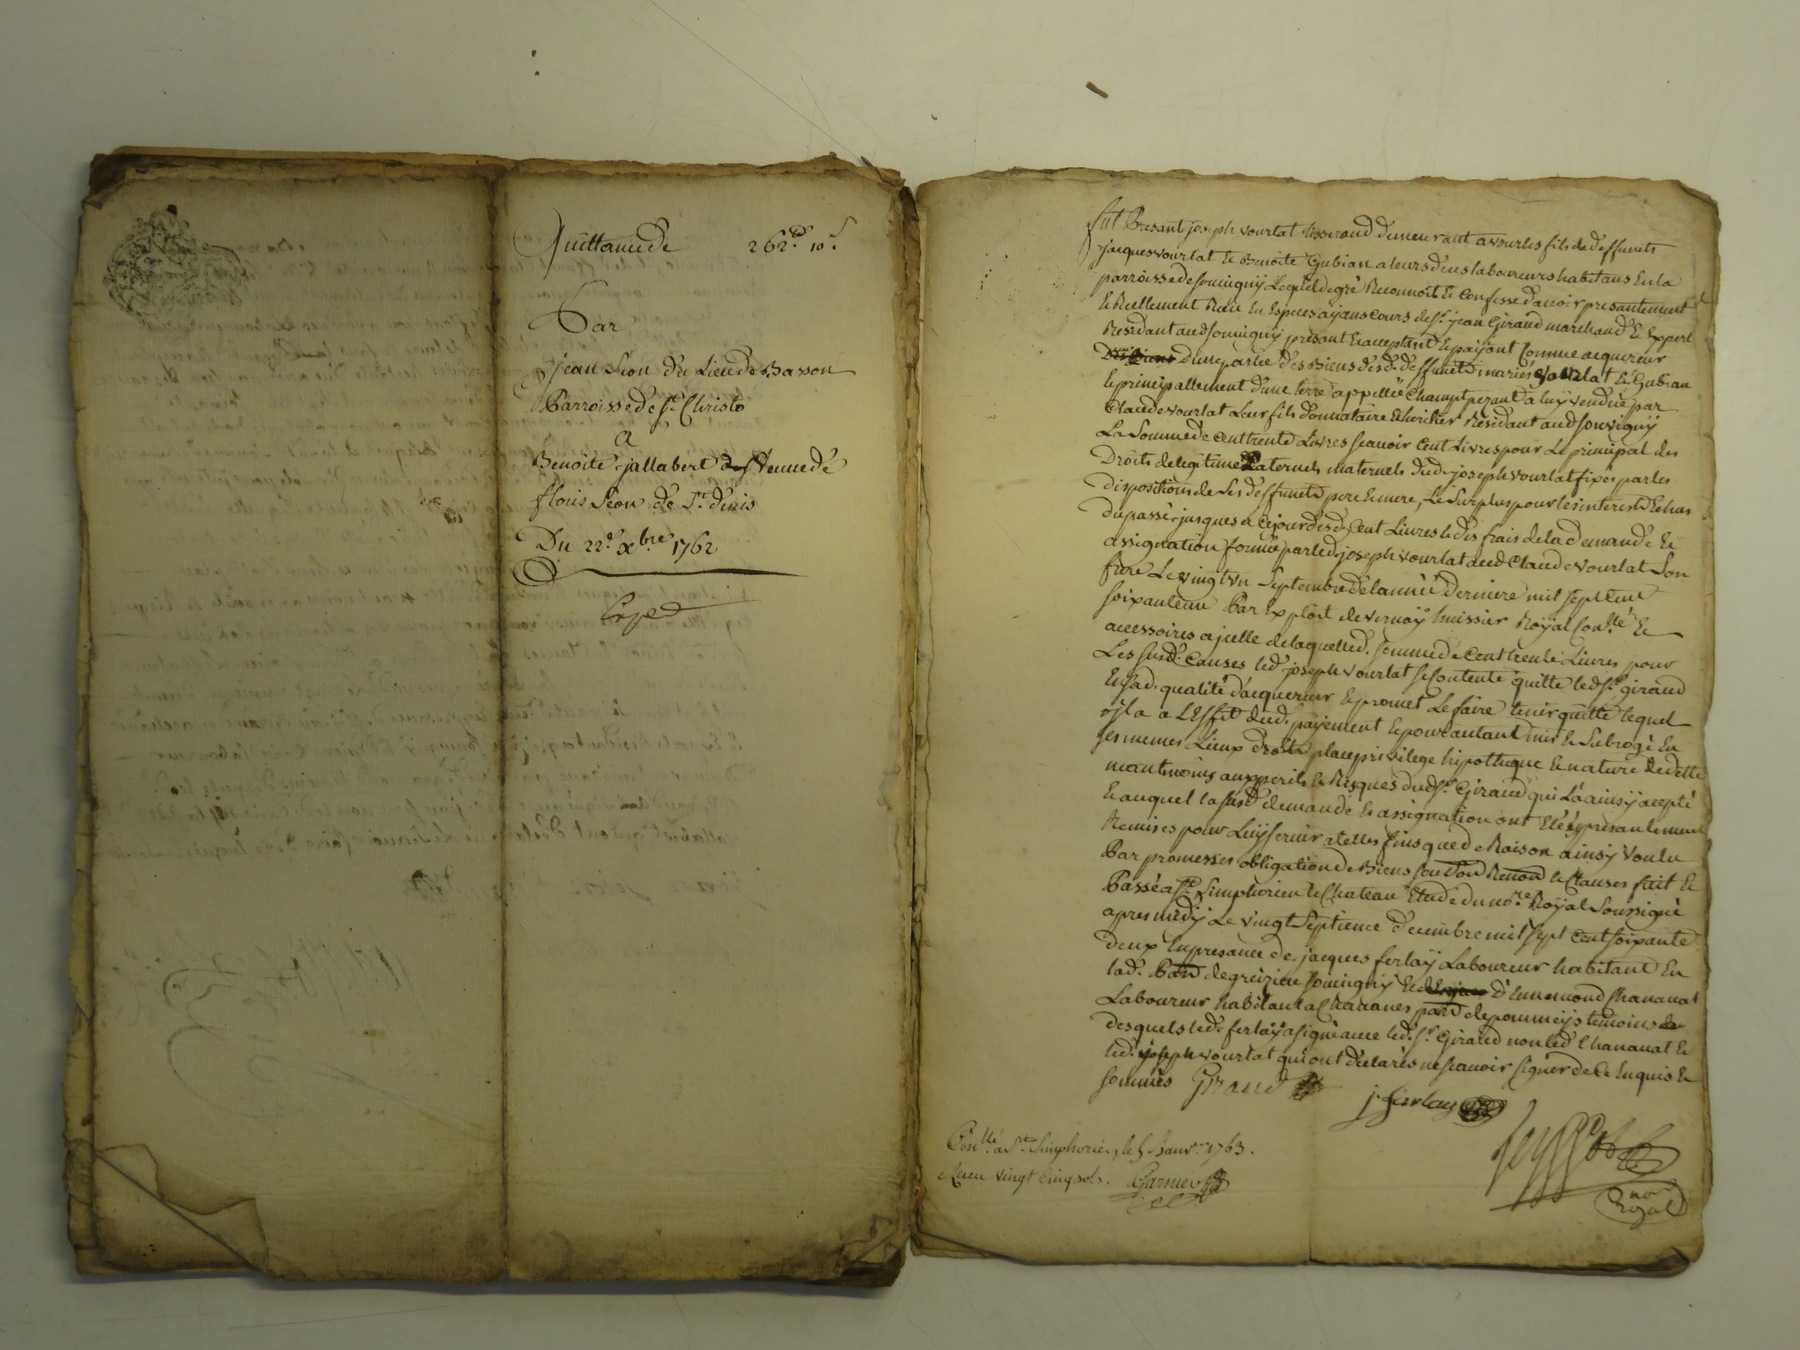 Quittance de 262# 10s
Par
jean Seon du Lieu de Basson
Parroisse de St Christo
A
Benoite jallabert veuve de
flouis Seon de St denis
Du 22e xbre 1762
Exped
fut Presant joseph vourlat tisserand demeurant a vourles fils de deffunts
jacques vourlat Et Benoite Gubian a leurs deces laboureurs habitans En la
parroisse de souvigny Lequel de gré Reconnoit Et Confesse d'avoir presantement
Et Reellement Reçu En Espices ayans cours de sr jean Giraud marchand Et Expert
Residant aud souvigny présant Et acceptant Et payant Comme acquereur
d'une partie des Biens desd. deffunts mariés vourlat Et Gubian
Et principallement d'une terre appellée Champt perant a luy vendue par
Claude vourlat Leur fils donnataire Et heritier Residant aud souvigny
La Somme de Cent trente Livres scavoir Cent Livres pour Le principal des
Droits de legitime Paternels maternels dud. joseph vourlat fixés par les
dispositions de Ses deffunts pere Et mere, Le Surplus pour les interests Echus
du passé jusques a Cejour desd. Cent Livres Et des frais de la demande Et
assignation formée par led. joseph vourlat aud Claude vourlat Son
frere Le vingt un Septembre de l'année derniere mil sept Cent
soixante un Par Exploit de vernay huissier Royal Conllé Et
accessoires ajcelle de laquelle d. somme de Cent trente Livres pour
Les susd. Causes led. joseph vourlat se Contente quitte led sr giraud
En sad. qualité d'acquereur Et promet Le faire tenir quitte lequel
oJl a a L'Effet dud. payement Et pour autant mis Et Subrogé En
ses memes Lieux droits place privilege hypotheque Et nature de dette
neantmoins aux perils Et Risques dud sr Giraud qui L'a ainsy accepté
Et auquel la susd demande Et assignation ont Eté presantement
Remises pour Luy servir a telles fins que de Raison ainsy Voulu
Par promesses obligation de Biens Renond Et Clauses fait Et
Passé a St Simphorien le Chateau Etude du nore Royal Soussigné
apres midy Le vingt Septieme decembre mil sept Cent soixante
deux En presance de jacques ferlay Laboureur habitant En
lad. Parr de Souvigny Et d'Ennemond Chananat
Laboureur habitant a parr de pommeys temoins
desquels led. ferlay a signé avec led. sr Giraud non led Chananat Et
led. joseph vourlat qui ont declarés ne scavoir signer de Ce Enquis Et
sommés Giraud
j. ferlay
nore
Royal
Conllé a St Simphorien, le 5 Janvr 1763.
Recu vingt Cinq sols. Garnier